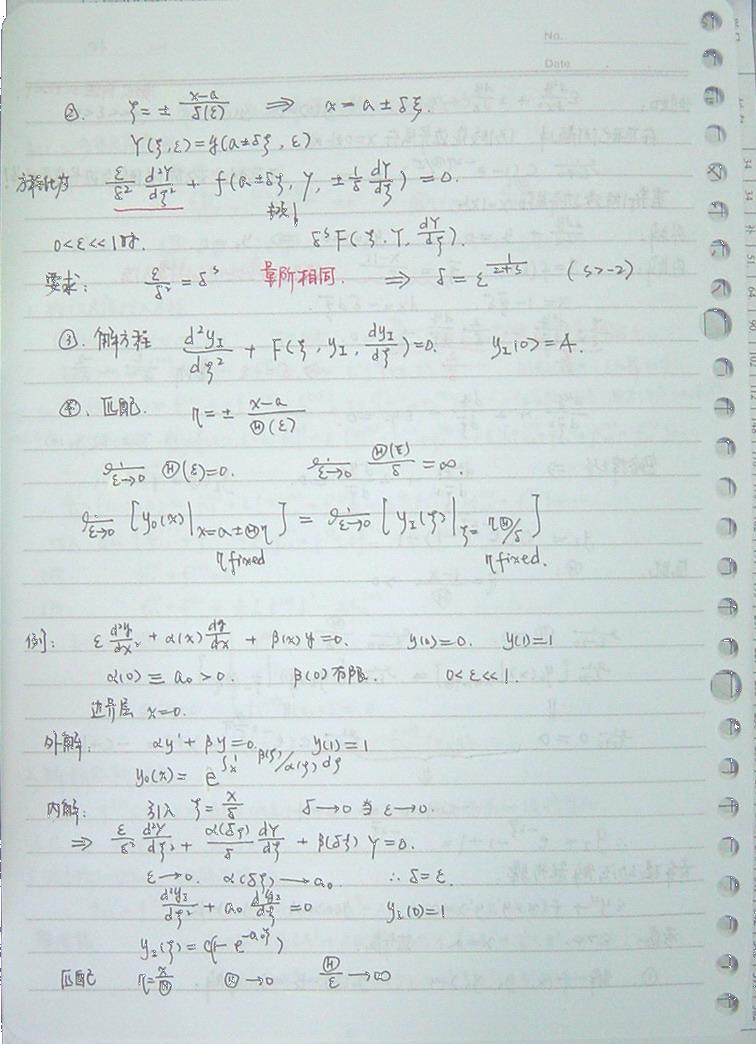 No.
Date
②. ξ = ± (x-a)/δ(ε) ⟹ x = a ± δξ.
Y(ξ,ε) = y(a±δξ, ε)
方程化为 ε/δ² d²Y/dξ² + f(a±δξ, Y, ±1/δ dY/dξ) = 0.
0<ε≪1时. δ^s F(ξ, Y, dY/dξ).
要求: ε/δ² = δ^s 量阶相同. ⟹ δ = ε^(1/(2+s)) (s>-2)
③. 解方程 d²y_I/dξ² + F(ξ, y_I, dy_I/dξ) = 0. y_I(0) = A.
④. 匹配. η = ± (x-a)/Ⓗ(ε)
lim ε→0 Ⓗ(ε) = 0. lim ε→0 Ⓗ(ε)/δ = ∞.
lim ε→0 [y₀(x)|x=a±Ⓗη] = lim ε→0 [y_I(ξ)|ξ=ηⒽ/δ]
η fixed η fixed.
例: ε d²y/dx² + α(x) dy/dx + β(x) y = 0. y(0)=0. y(1)=1
α(0) ≡ a₀ > 0. β(0) 有限. 0<ε≪1.
边界层 x=0.
外解: αy' + βy = 0. y(1)=1
y₀(x) = e^(∫_x^1 β(ξ)/α(ξ) dξ)
内解: 引入 ξ = x/δ δ→0 当 ε→0.
⟹ ε/δ² d²Y/dξ² + α(δξ)/δ dY/dξ + β(δξ) Y = 0.
ε→0. α(δξ) → a₀. ∴ δ=ε.
d²y_I/dξ² + a₀ dy_I/dξ = 0 y_I(0)=1
y_I(ξ) = c(1-e^(-a₀ξ))
匹配 η = x/Ⓗ Ⓗ→0 Ⓗ/ε→∞